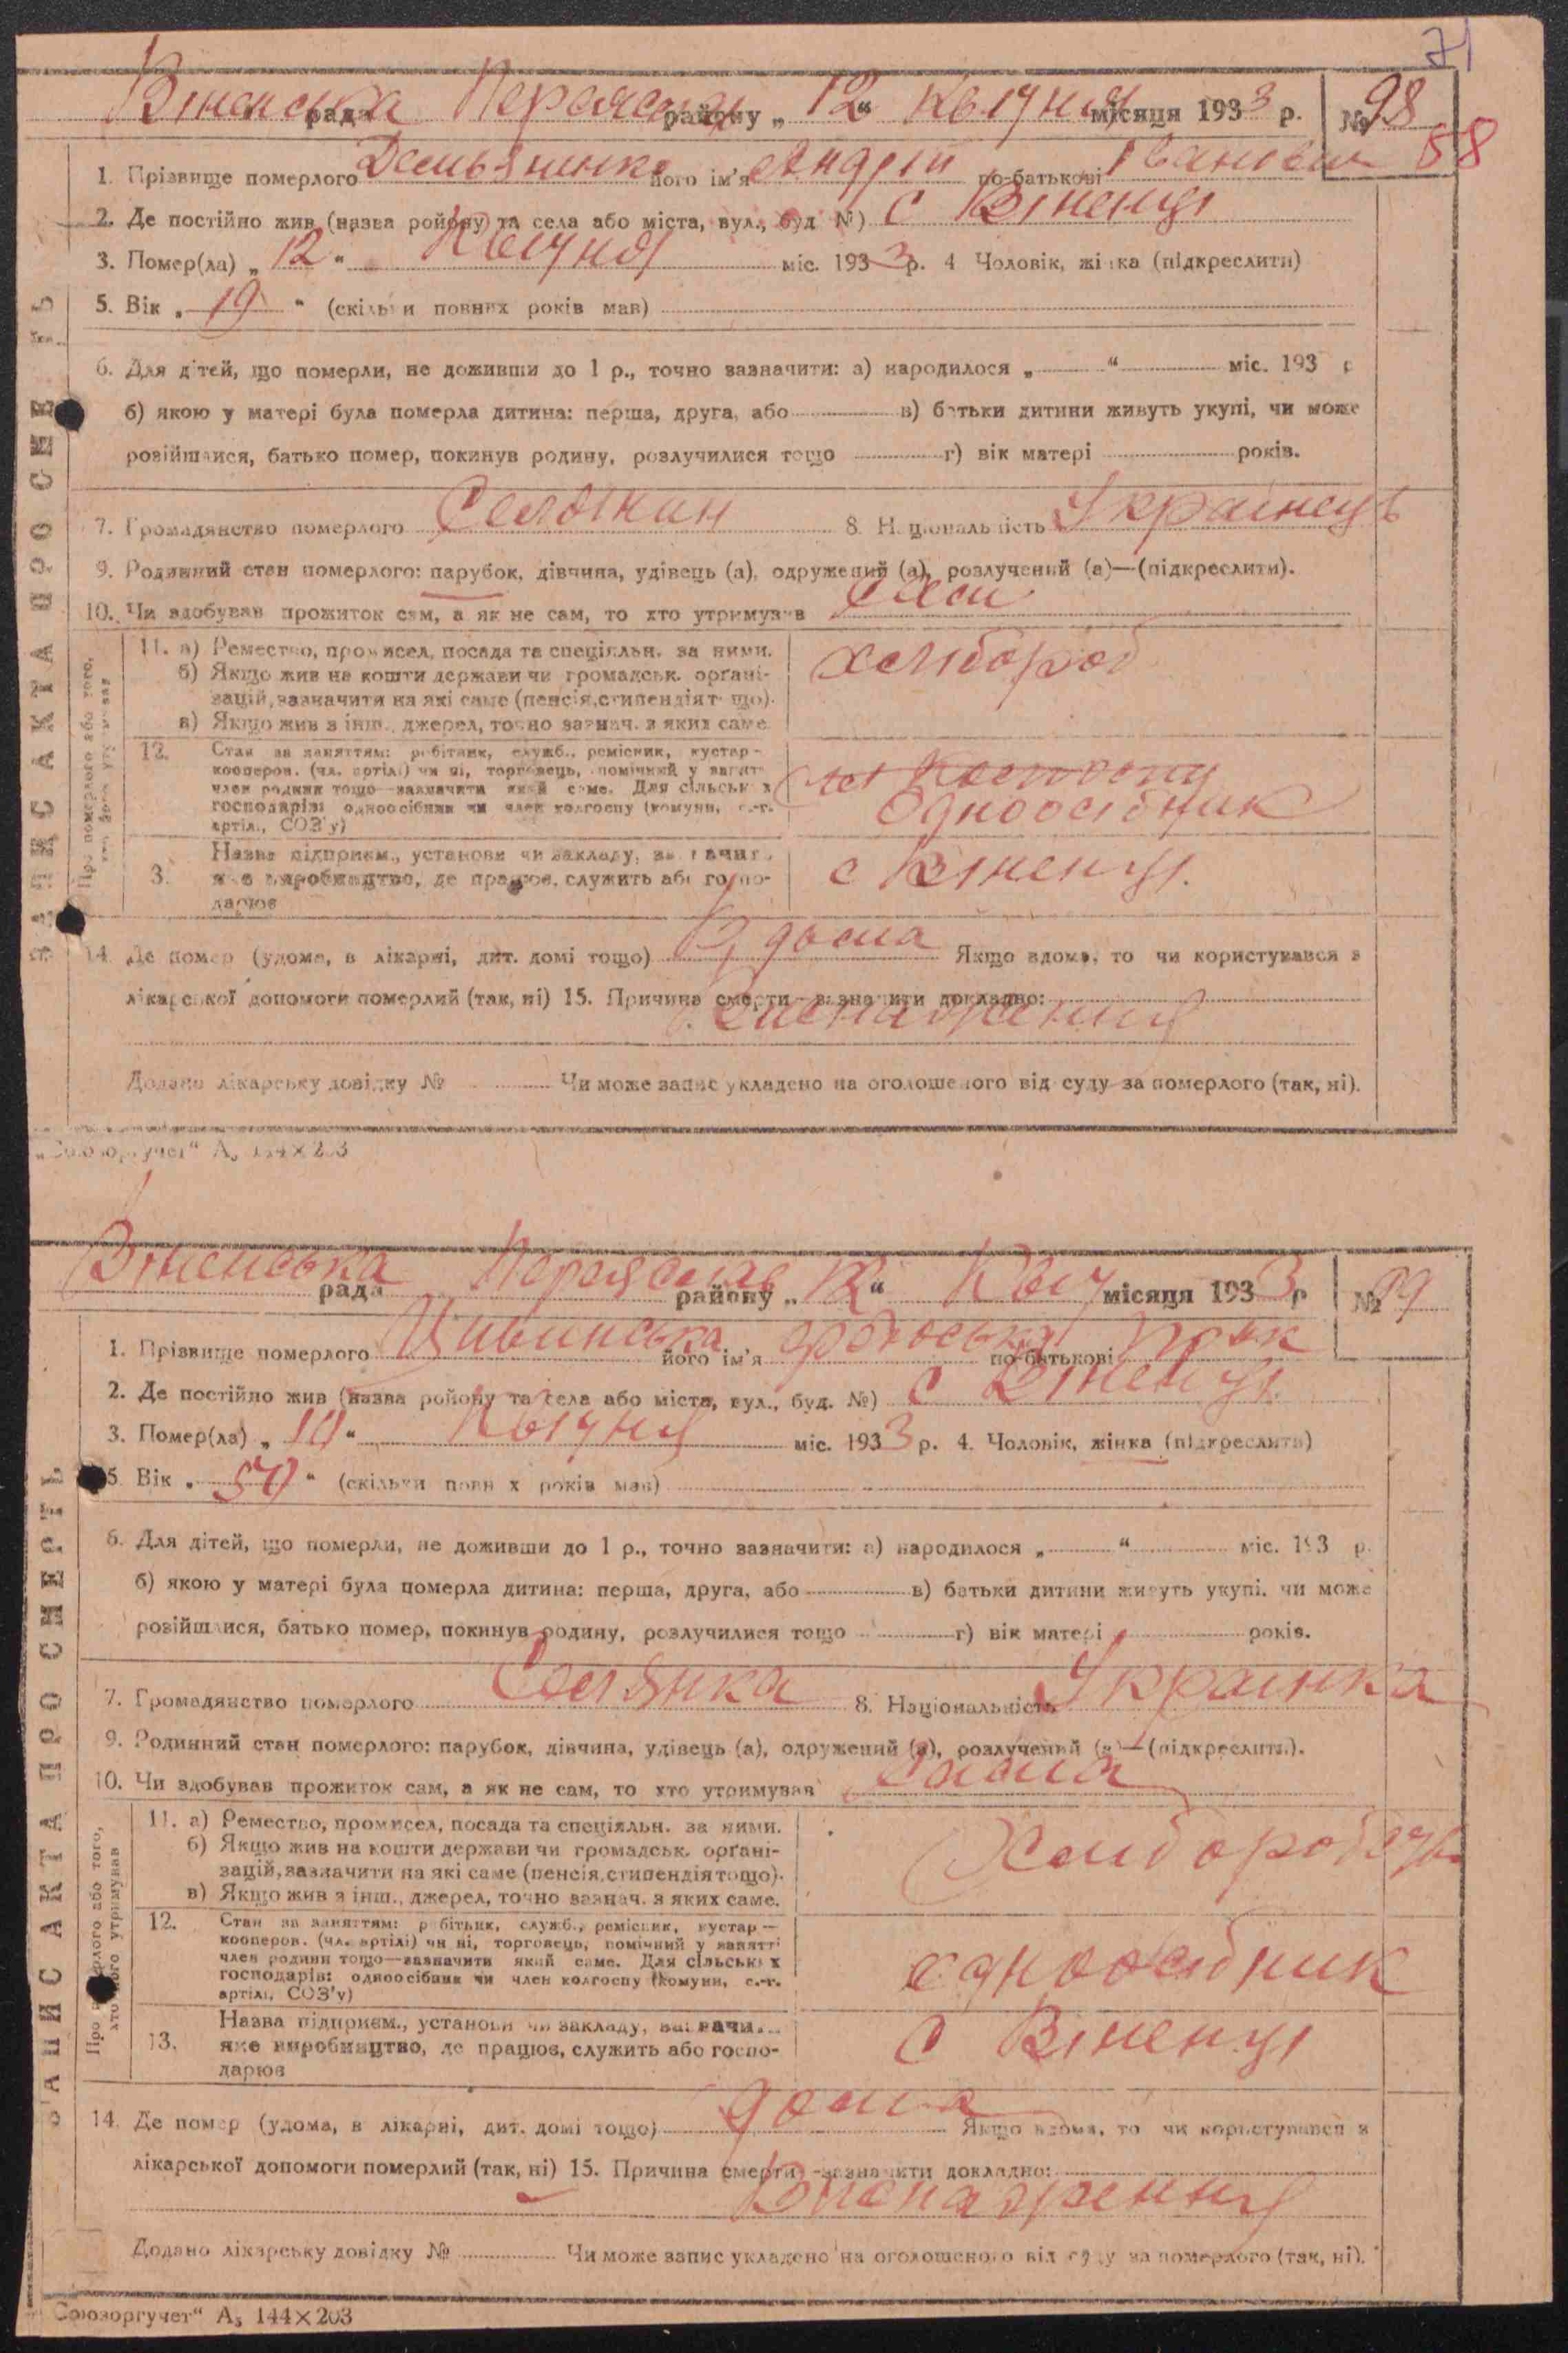 71
Віненська рада Переяслав району „12“ Квітня місяця 1933 р. № 98
58
1. Прізвище померлого Демьяненко його ім'я Андрій по-батькові Іванович
2. Де постійно жив (назва ройону та села або міста, вул., буд №) с Віненці
3. Помер(ла) „12“ Квітня міс. 1933 р. 4 Чоловік, жінка (підкреслити)
5. Вік „19“ (скільки повних років мав)
6. Для дітей, що померли, не доживши до 1 р., точно зазначити: а) народилося „ “ міс. 193 р
б) якою у матері була померла дитина: перша, друга, або в) батьки дитини живуть укупі, чи може
розійшлися, батько помер, покинув родину, розлучилися тощо г) вік матері років.
7. Громадянство померлого Селянин 8. Національність Українець
9. Родинний стан померлого: парубок, дівчина, удівець (а), одружений (а), розлучений (а)—(підкреслити).
10. Чи здобував прожиток сам, а як не сам, то хто утримував сам
ЗАПИС АКТА ПРО СМЕРТЬ
Про померлого або того, хто його утримував
11. а) Ремество, промисел, посада та спеціяльн. за ними. хлібороб
б) Якщо жив на кошти держави чи громадськ. орґані-
зацій, зазначити на які саме (пенсія, стипендія тощо).
в) Якщо жив з інш., джерел, точно зазнач. з яких саме.
12. Стан за заняттям: робітник, служб., ремісник, кустар—
кооперов. (чл. артілі) чи ні, торговець, помічний у занятті
член родини тощо—зазначити який саме. Для сільських
господарів: одноосібник чи член колгоспу (комуни, с.-г.
артіл., СОЗ'у)
одноосібник
Назва підприєм., установи чи закладу, зазначити
3. яке виробництво, де працює, служить або госпо- с Віненці.
дарює
14 Де помер (удома, в лікарні, дит. домі тощо) дома Якщо вдома, то чи користувався з
лікарської допомоги померлий (так, ні) 15. Причина смерти—зазначити докладно:
Додано лікарську довідку № Чи може запис укладено на оголошеного від суду за померлого (так, ні).
„Союзоргучет“ А₅ 144×203
Віненська рада Переяслав району „12“ Квіт місяця 1933 р № 99
1. Прізвище померлого його ім'я по-батькові
2. Де постійно жив (назва ройону та села або міста, вул., буд. №) с Віненці
3. Помер(ла) „ “ Квітня міс. 1933 р. 4. Чоловік, жінка (підкреслити)
5. Вік „50“ (скільки повних років мав)
6. Для дітей, що померли, не доживши до 1 р., точно зазначити: а) народилося „ “ міс. 193 р.
б) якою у матері була померла дитина: перша, друга, або в) батьки дитини живуть укупі, чи може
розійшлися, батько помер, покинув родину, розлучилися тощо г) вік матері років.
7. Громадянство померлого Селянка 8. Національність Українка
9. Родинний стан померлого: парубок, дівчина, удівець (а), одружений (а), розлучений (а)—(підкреслити).
10. Чи здобував прожиток сам, а як не сам, то хто утримував сама
ЗАПИС АКТА ПРО СМЕРТЬ
Про померлого або того, хто його утримував
11. а) Ремество, промисел, посада та спеціяльн. за ними.
б) Якщо жив на кошти держави чи громадськ. орґані-
зацій, зазначити на які саме (пенсія, стипендія тощо).
в) Якщо жив з інш., джерел, точно зазнач. з яких саме.
12. Стан за заняттям: робітник, служб., ремісник, кустар—
кооперов. (чл. артілі) чи ні, торговець, помічний у занятті
член родини тощо—зазначити який саме. Для сільських
господарів: одноосібник чи член колгоспу (комуни, с.-г.
артіл., СОЗ'у)
одноосібник
Назва підприєм., установи чи закладу, зазначити
13. яке виробництво, де працює, служить або госпо- с Віненці
дарює
14. Де помер (удома, в лікарні, дит. домі тощо) дома Якщо вдома, то чи користувався з
лікарської допомоги померлий (так, ні) 15. Причина смерти—зазначити докладно:
Виснаження
Додано лікарську довідку № Чи може запис укладено на оголошеного від суду за померлого (так, ні).
Союзоргучет“ А₅ 144×203